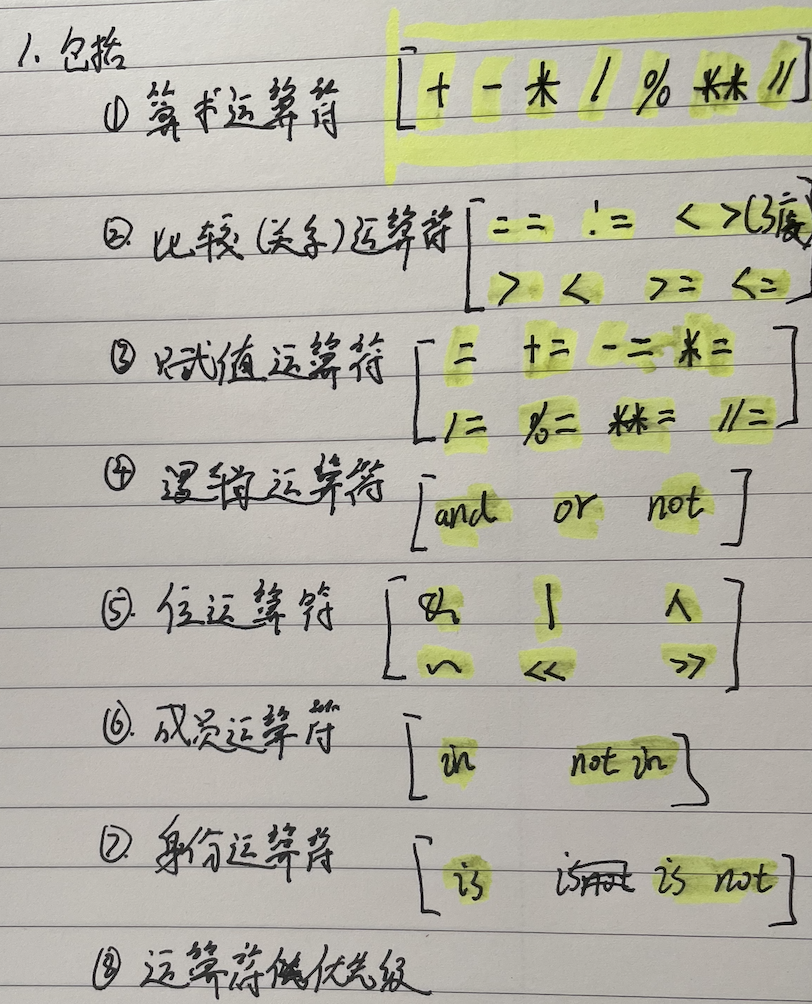 1. 包括
① 算术运算符 [+ - * / % ** //]
② 比较(关系)运算符 [== != <>(3废)
> < >= <=]
③ 赋值运算符 [= += -= *=
/= %= **= //=]
④ 逻辑运算符 [and or not]
⑤. 位运算符 [& | ^
~ << >>]
⑥. 成员运算符 [in not in]
⑦. 身份运算符 [is is not]
⑧ 运算符优先级